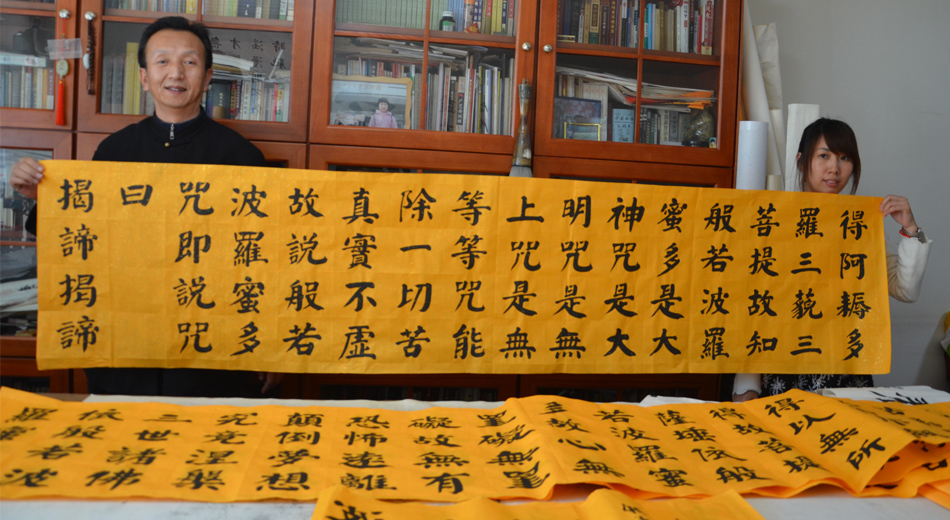 得阿耨多
羅三藐三
菩提故知
般若波羅
蜜多是大
神咒是大
明咒是無
上咒是無
等等咒能
除一切苦
真實不虛
故說般若
波羅蜜多
咒即說咒
曰
揭諦揭諦
得以無所
得故菩提
薩埵依般
若波羅蜜
多故心無
罣礙無罣
礙故無有
恐怖遠離
顛倒夢想
究竟涅槃
三世諸佛
依般若波
羅